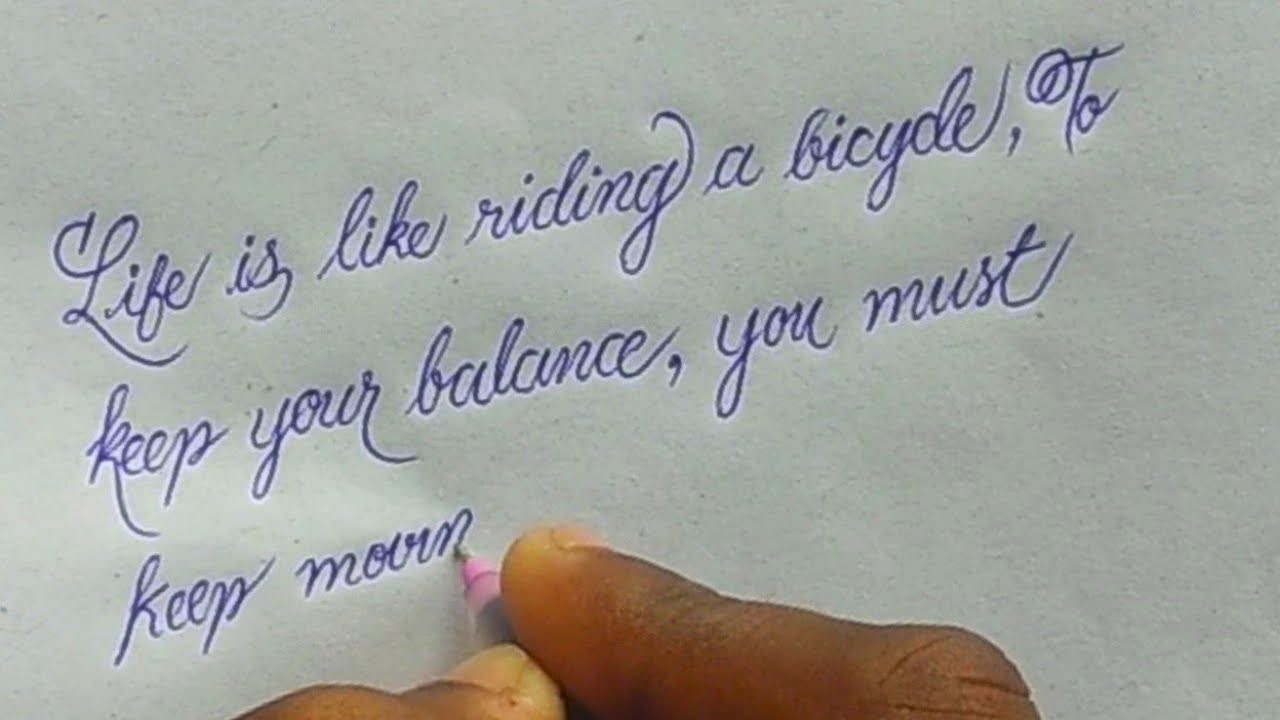 Life is like riding a bicycle, To
keep your balance, you must
keep movin